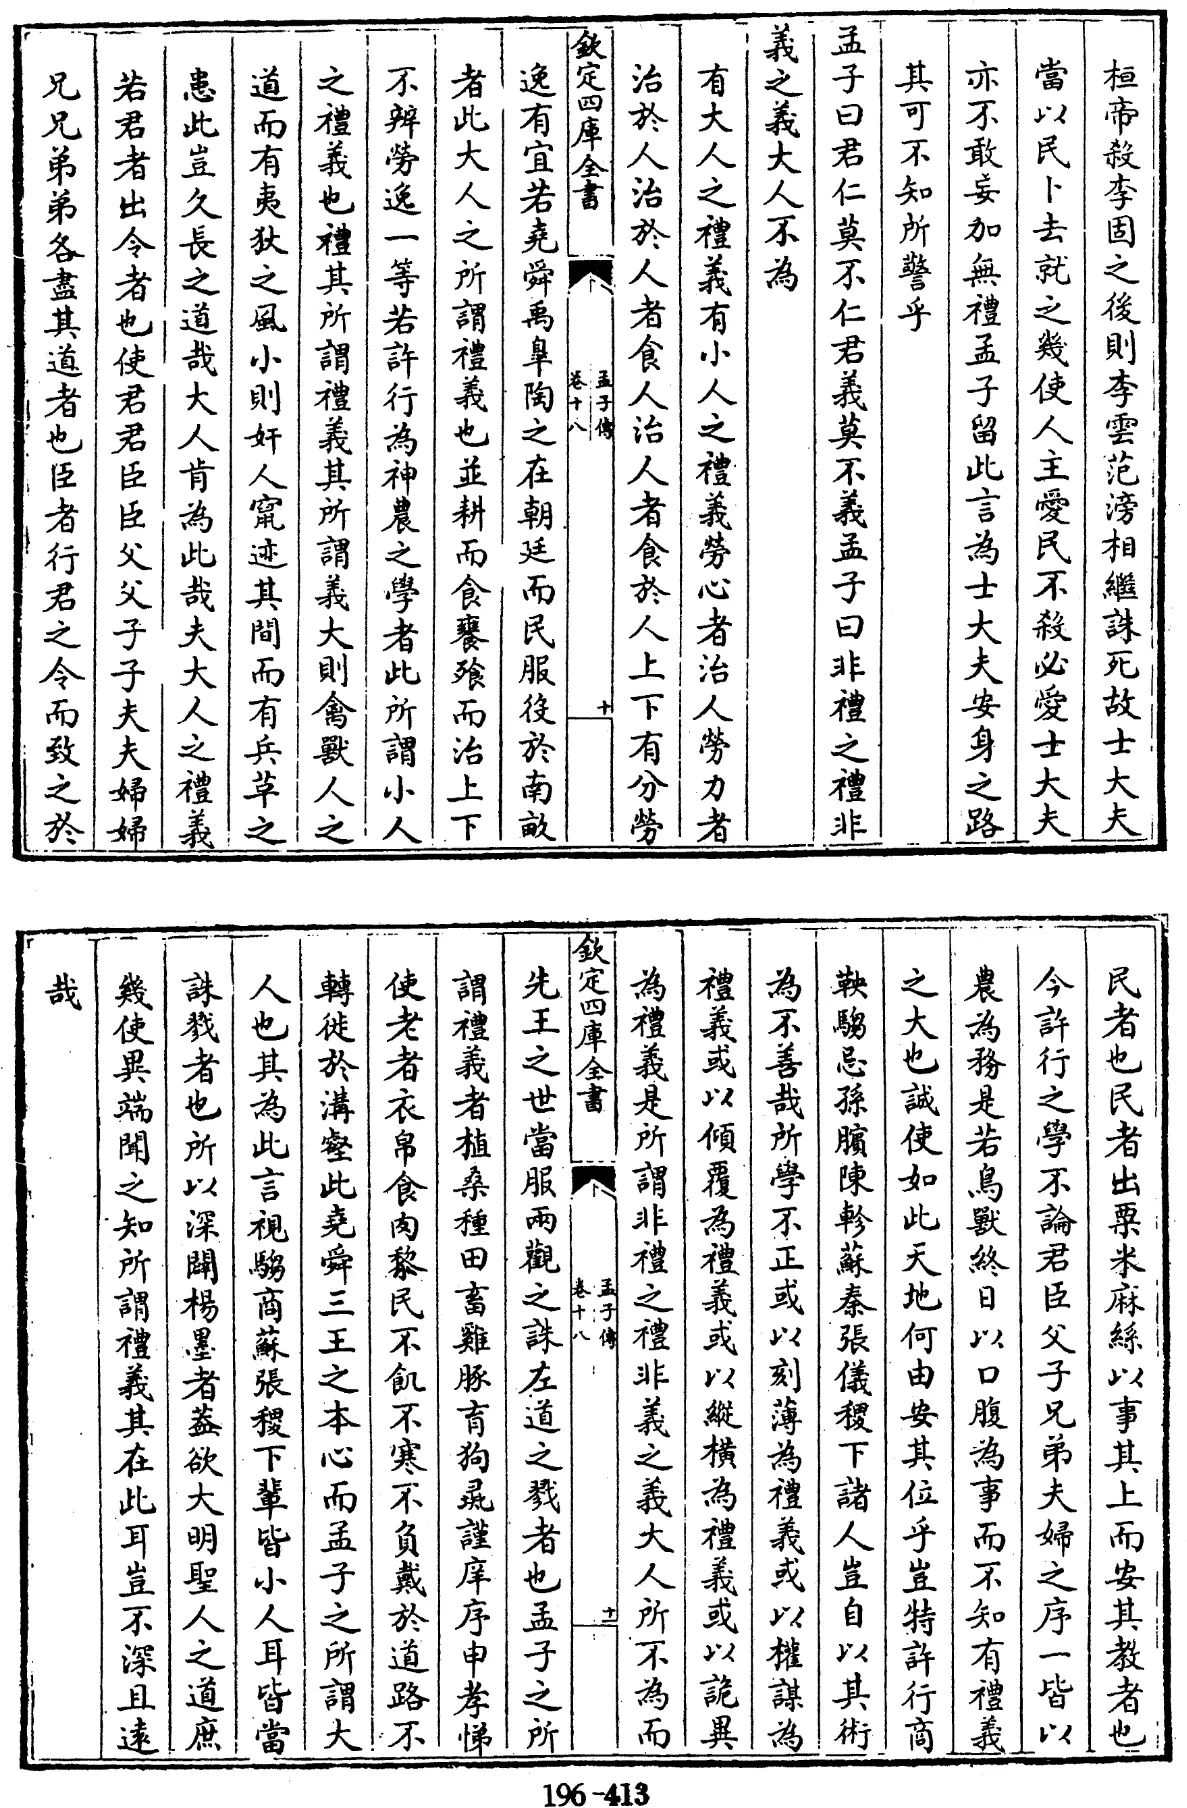 桓帝殺李固之後則李雲范滂相繼誅死故士大夫
當以民卜去就之幾使人主愛民不殺必愛士大夫
亦不敢妄加無禮孟子留此言為士大夫安身之路
其可不知所警乎
孟子曰君仁莫不仁君義莫不義孟子曰非禮之禮非
義之義大人不為
有大人之禮義有小人之禮義勞心者治人勞力者
治於人治於人者食人治人者食於人上下有分勞
欽定四庫全書
孟子傳
卷十八
十
逸有宜若堯舜禹臯陶之在朝廷而民服役於南畝
者此大人之所謂禮義也並耕而食饔飱而治上下
不辨勞逸一等若許行為神農之學者此所謂小人
之禮義也禮其所謂禮義其所謂義大則禽獸人之
道而有夷狄之風小則奸人竄迹其間而有兵草之
患此豈久長之道哉大人肯為此哉夫大人之禮義
若君者出令者也使君君臣臣父父子子夫夫婦婦
兄兄弟弟各盡其道者也臣者行君之令而致之於
民者也民者出粟米麻絲以事其上而安其教者也
今許行之學不論君臣父子兄弟夫婦之序一皆以
農為務是若鳥獸終日以口腹為事而不知有禮義
之大也誠使如此天地何由安其位乎豈特許行商
鞅騶忌孫臏陳軫蘇秦張儀稷下諸人豈自以其術
為不善哉所學不正或以刻薄為禮義或以權謀為
禮義或以傾覆為禮義或以縱橫為禮義或以詭異
為禮義是所謂非禮之禮非義之義大人所不為而
欽定四庫全書
孟子傳
卷十八
十一
先王之世當服兩觀之誅左道之戮者也孟子之所
謂禮義者植桑種田畜雞豚育狗彘謹庠序申孝悌
使老者衣帛食肉黎民不飢不寒不負戴於道路不
轉徙於溝壑此堯舜三王之本心而孟子之所謂大
人也其為此言視騶商蘇張稷下輩皆小人耳皆當
誅戮者也所以深闢楊墨者葢欲大明聖人之道庶
幾使異端聞之知所謂禮義其在此耳豈不深且逺
哉
196-413